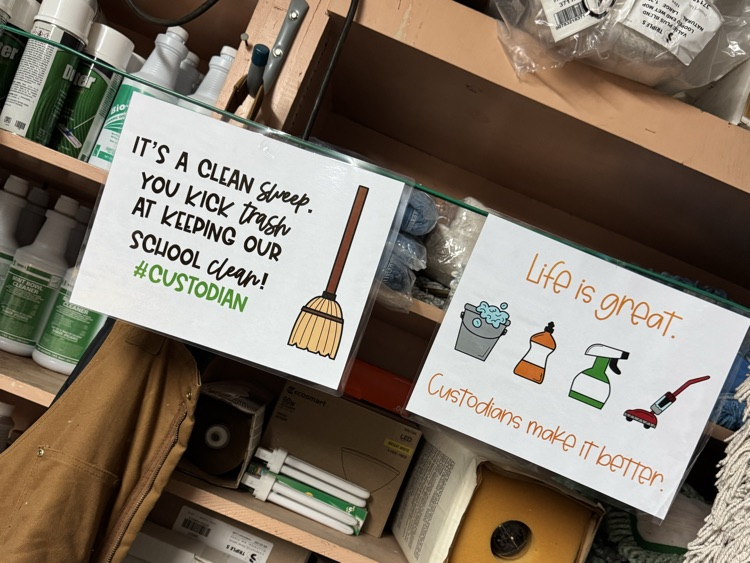 IT'S A CLEAN sweep.
YOU KICK trash
AT KEEPING OUR
SCHOOL clean!
#CUSTODIAN
Life is great.
Custodians make it better.
ecosmart
LED
TRIPLE S
TRIPLE S